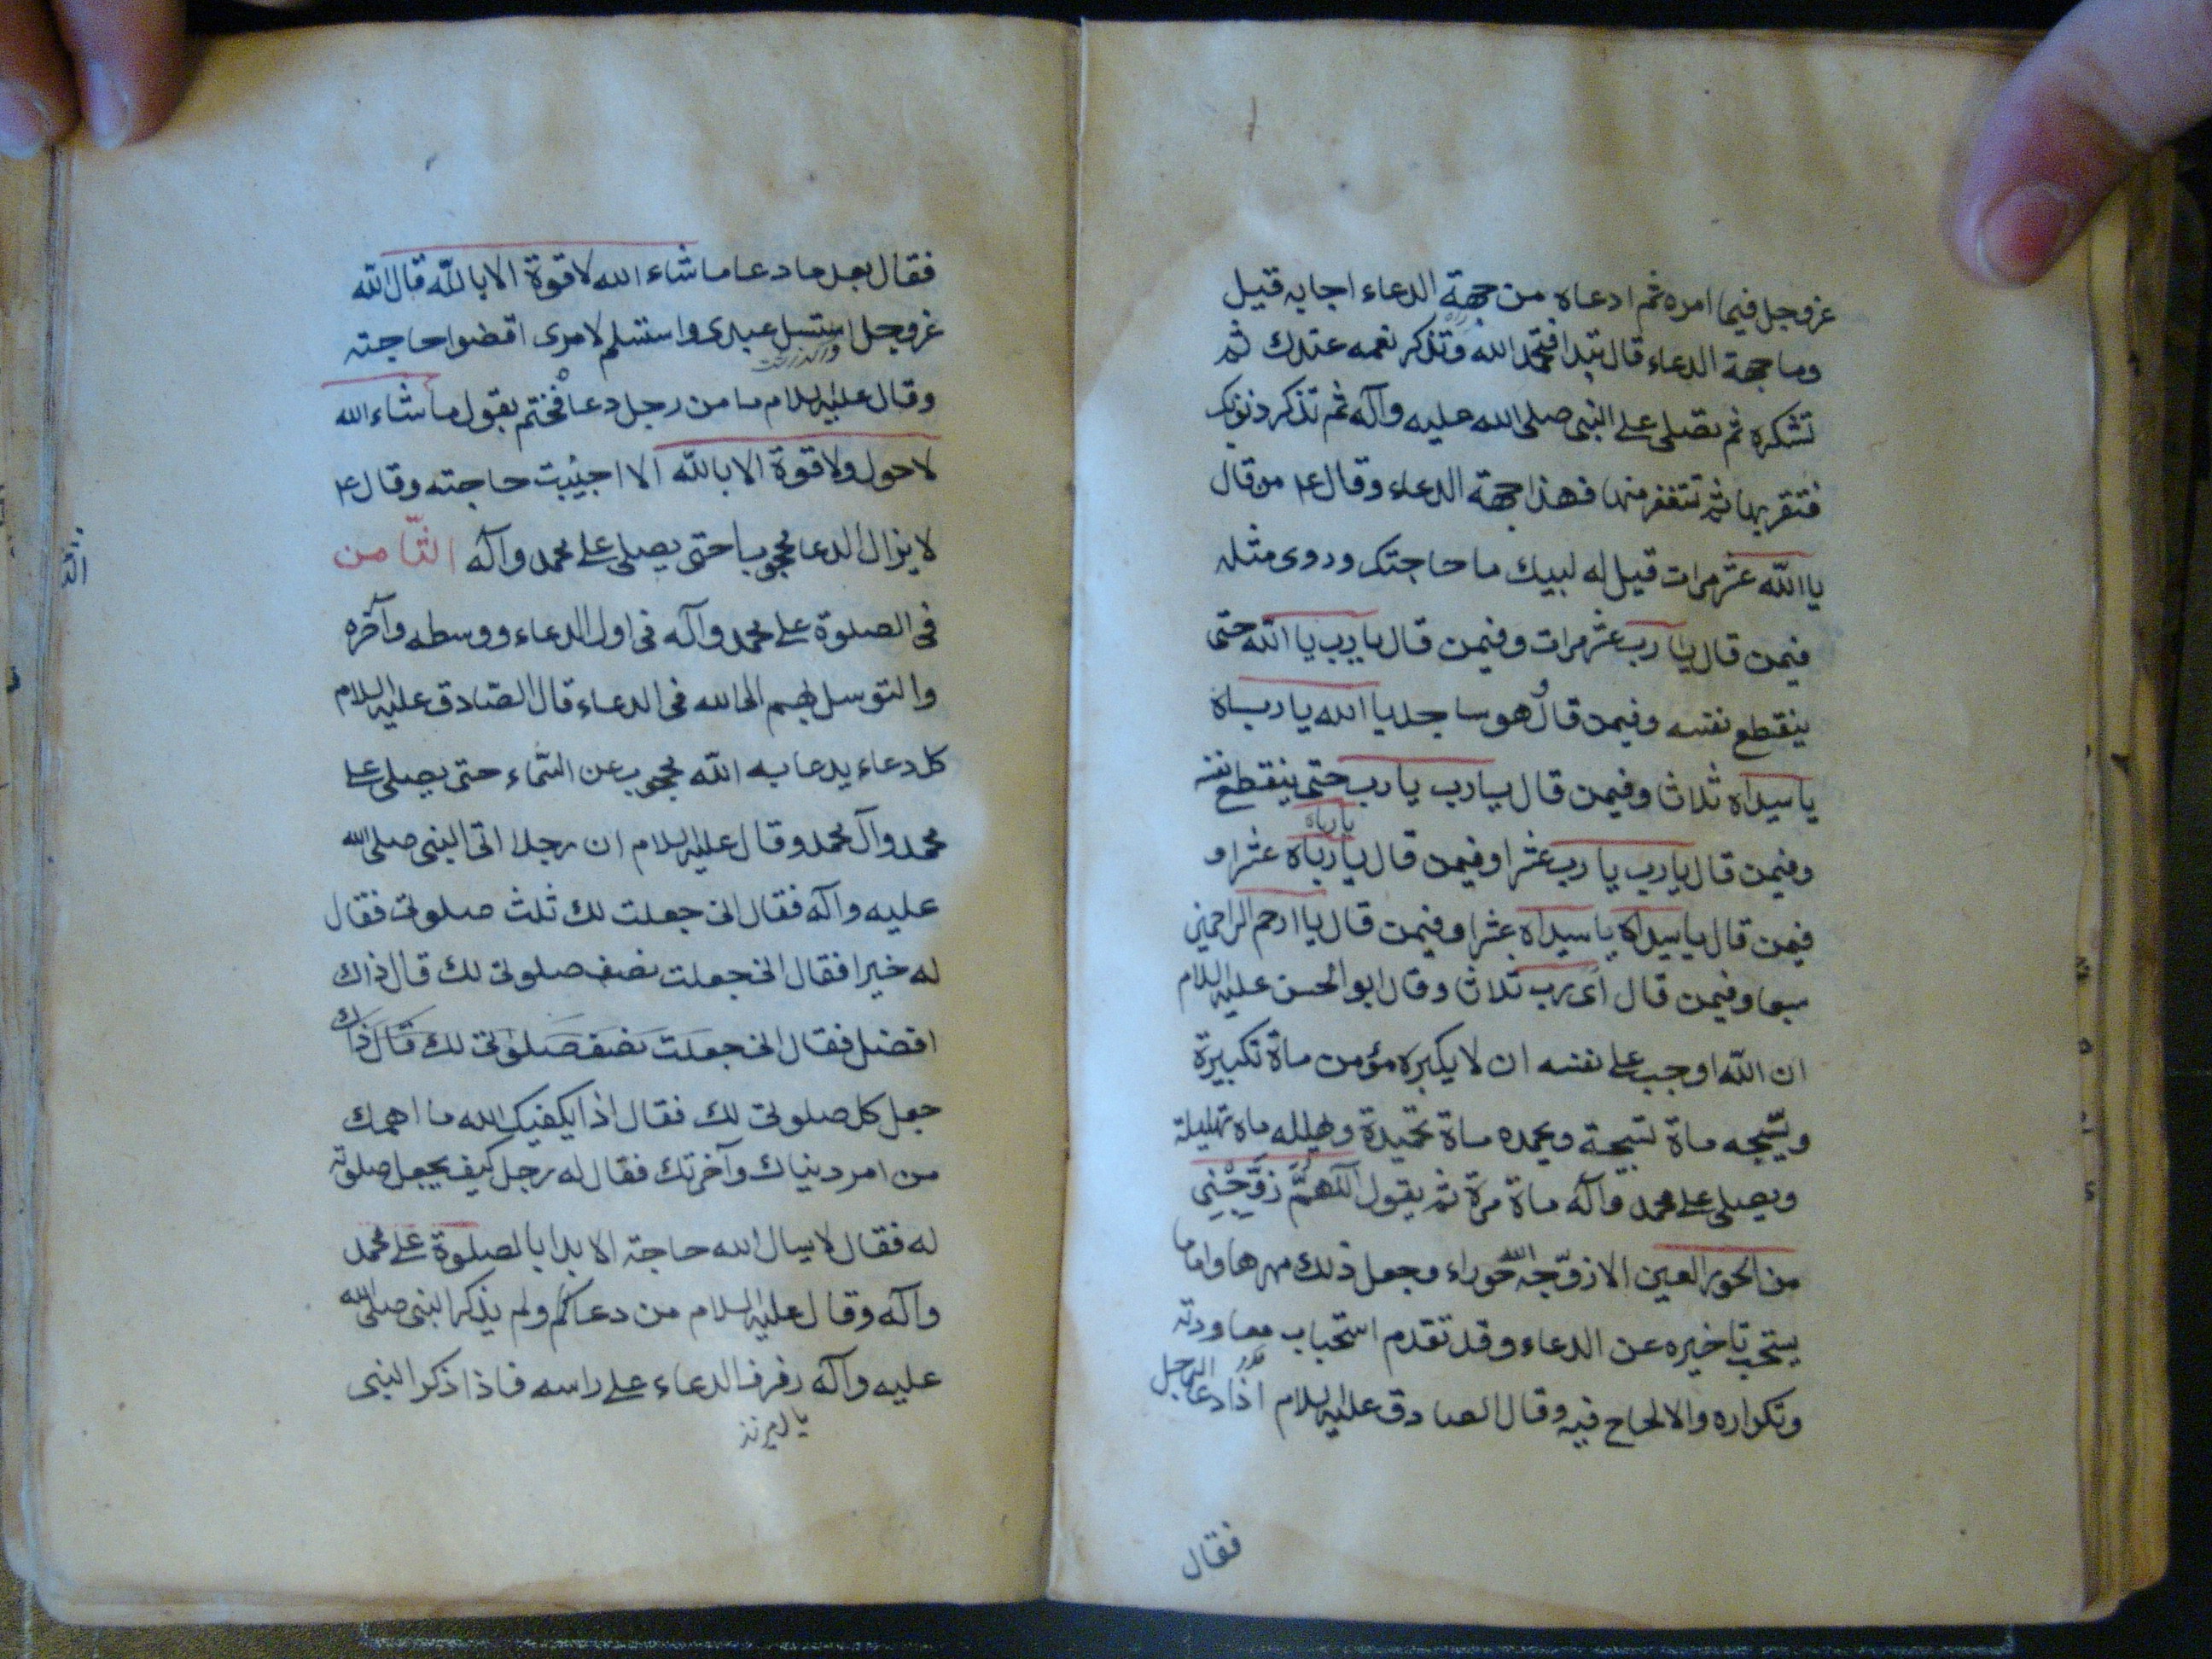 عزوجل فيما امره ثم ادعاه من جهة الدعاء اجابه قيل
وما جهة الدعاء قال تبدا فتحمد الله وتذكر نعمه عندك ثم
تشكره ثم تصلى على النبى صلى الله عليه وآله ثم تذكر ذنوبك
فتقر بها ثم تستغفر منها فهذا جهة الدعاء وقال ع من قال
يا الله عشر مرات قيل له لبيك ما حاجتك وروى مثله
فيمن قال يا رب عشر مرات وفيمن قال يا رب يا الله حتى
ينقطع نفسه وفيمن قال وهو ساجد يا الله يا رباه
يا سيداه ثلاثا وفيمن قال يا رب يا رب حتى ينقطع نفسه
وفيمن قال يا رب يا رب عشرا وفيمن قال يا رباه يا رباه عشرا و
فيمن قال يا سيداه يا سيداه عشرا وفيمن قال يا ارحم الراحمين
سبعا وفيمن قال اى رب ثلاثا وقال ابو الحسن عليه السلام
ان الله اوجب على نفسه ان لا يكبره مؤمن ماة تكبيرة
ويسبحه ماة تسبيحة ويحمده ماة تحميدة ويهلله ماه تهليلة
ويصلى على محمد وآله ماة مرة ثم يقول اللهم زوجنى
من الحور العين الا زوجه الله حوراء وجعل ذلك مهرها واما ما
يستحب تاخيره عن الدعاء وقد تقدم استحباب معاودته
وتكراره والالحاح فيه وقال الصادق عليه السلام اذا دعا الرجل
فقال
فقال بعد ما دعا ما شاء الله لا قوة الا بالله قال الله
عزوجل استبسل عبدى واستسلم لامرى اقضوا حاجته
وقال عليه السلام ما من رجل دعا فختم بقول ما شاء الله
لا حول ولا قوة الا بالله الا اجيبت حاجته وقال ع
لا يزال الدعا محجوبا حتى يصلى على محمد وآله الثامن
فى الصلوة على محمد وآله فى اول الدعاء ووسطه وآخره
والتوسل بهم الى الله فى الدعاء قال الصادق عليه السلام
كل دعاء يدعا به الله محجوب عن السماء حتى يصلى على
محمد وآل محمد وقال عليه السلام ان رجلا اتى النبى صلى الله
عليه وآله فقال انى جعلت لك ثلث صلوتى فقال
له خيرا فقال انى جعلت نصف صلوتى لك قال ذاك
افضل فقال انى جعلت نصف صلوتى لك قال ذاك
جعل كل صلوتى لك فقال اذا يكفيك الله ما اهمك
من امر دنياك وآخرتك فقال له رجل كيف يجعل صلوته
له فقال لا يسال الله حاجة الا بدا بالصلوة على محمد
وآله وقال عليه السلام من دعاكم ولم يذكر النبى صلى الله
عليه وآله رفرف الدعاء على راسه فاذا ذكر النبى